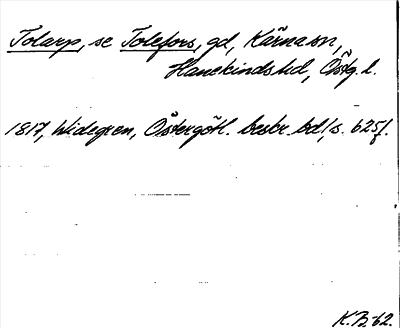 Tolarp, se Tolefors, gd, Kärna sn,
Hanekinds hd, Östg. l.
1817, Widegren, Östergötl. beskr. bd 1, s. 625f.
K.B. 62.